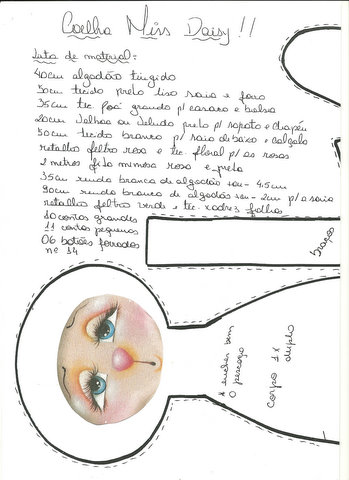 Coelha Miss Daisy !!
Lista de material:
40cm algodão tingido
50cm tecido preto liso saia e forro
35cm tec. poá grande p/ casaco e bolsa
20cm Jalhoa ou veludo preto p/ sapato e chapéu
50cm tecido branco p/ saia debaixo e calçola
retalhos feltro rosa e tec floral p/ as rosas
2 metros fita mimosa rosa e preta
35cm renda branca de algodão 4.5cm
90cm renda branca de algodão 2cm p/ a saia
retalhos feltro verde e tec. xadrez folhas
10 contas grandes
11 contas pequenas
06 botões forrados
nº 14
braços
* encher bem
o pescoço
corpo 1x
duplo